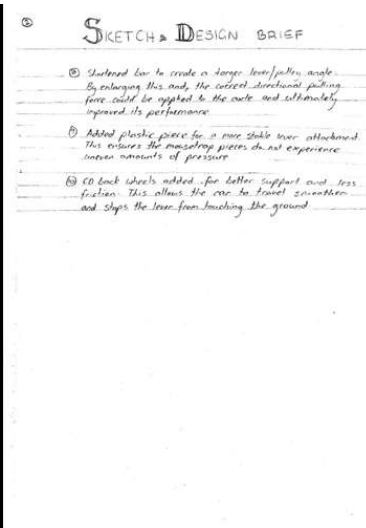 ②
SKETCH & DESIGN BRIEF
⑧ Shortened bar to create a larger lever/pulley angle.
By enlarging this angle, the correct directional pulling
force could be applied to the axle and ultimately
improved its performance
⑨ Added plastic piece for a more stable lever attachment.
This ensures the mousetrap pieces do not experience
uneven amounts of pressure
⑩ CD back wheels added for better support and less
friction. This allows the car to travel smoother
and stops the lever from touching the ground